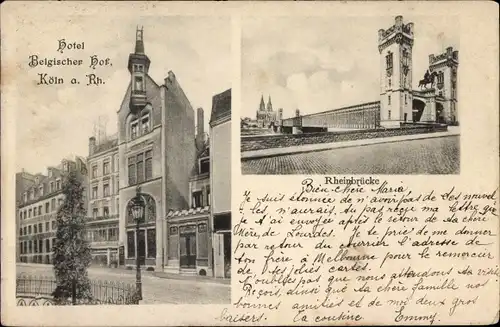 Hotel
Belgischer Hof,
Köln a. Rh.
Rheinbrücke
Bien-chère Maria,
Je suis étonnée de n'avoir pas de tes nouvel
les n'aurais-tu pas reçu ma lettre que
je t'envoyée après le retour de ta chère
Mère de Lourdes. Je te prie de me donner
par retour du courrier l'adresse de
ton frère à Melbourne pour le remercier
de ses jolies cartes.
T'oublies pas que nous attendons ta visite
Reçois, ainsi que ta chère famille nos
bonnes amitiés et de moi deux gros
baisers. Ta cousine Emmy.